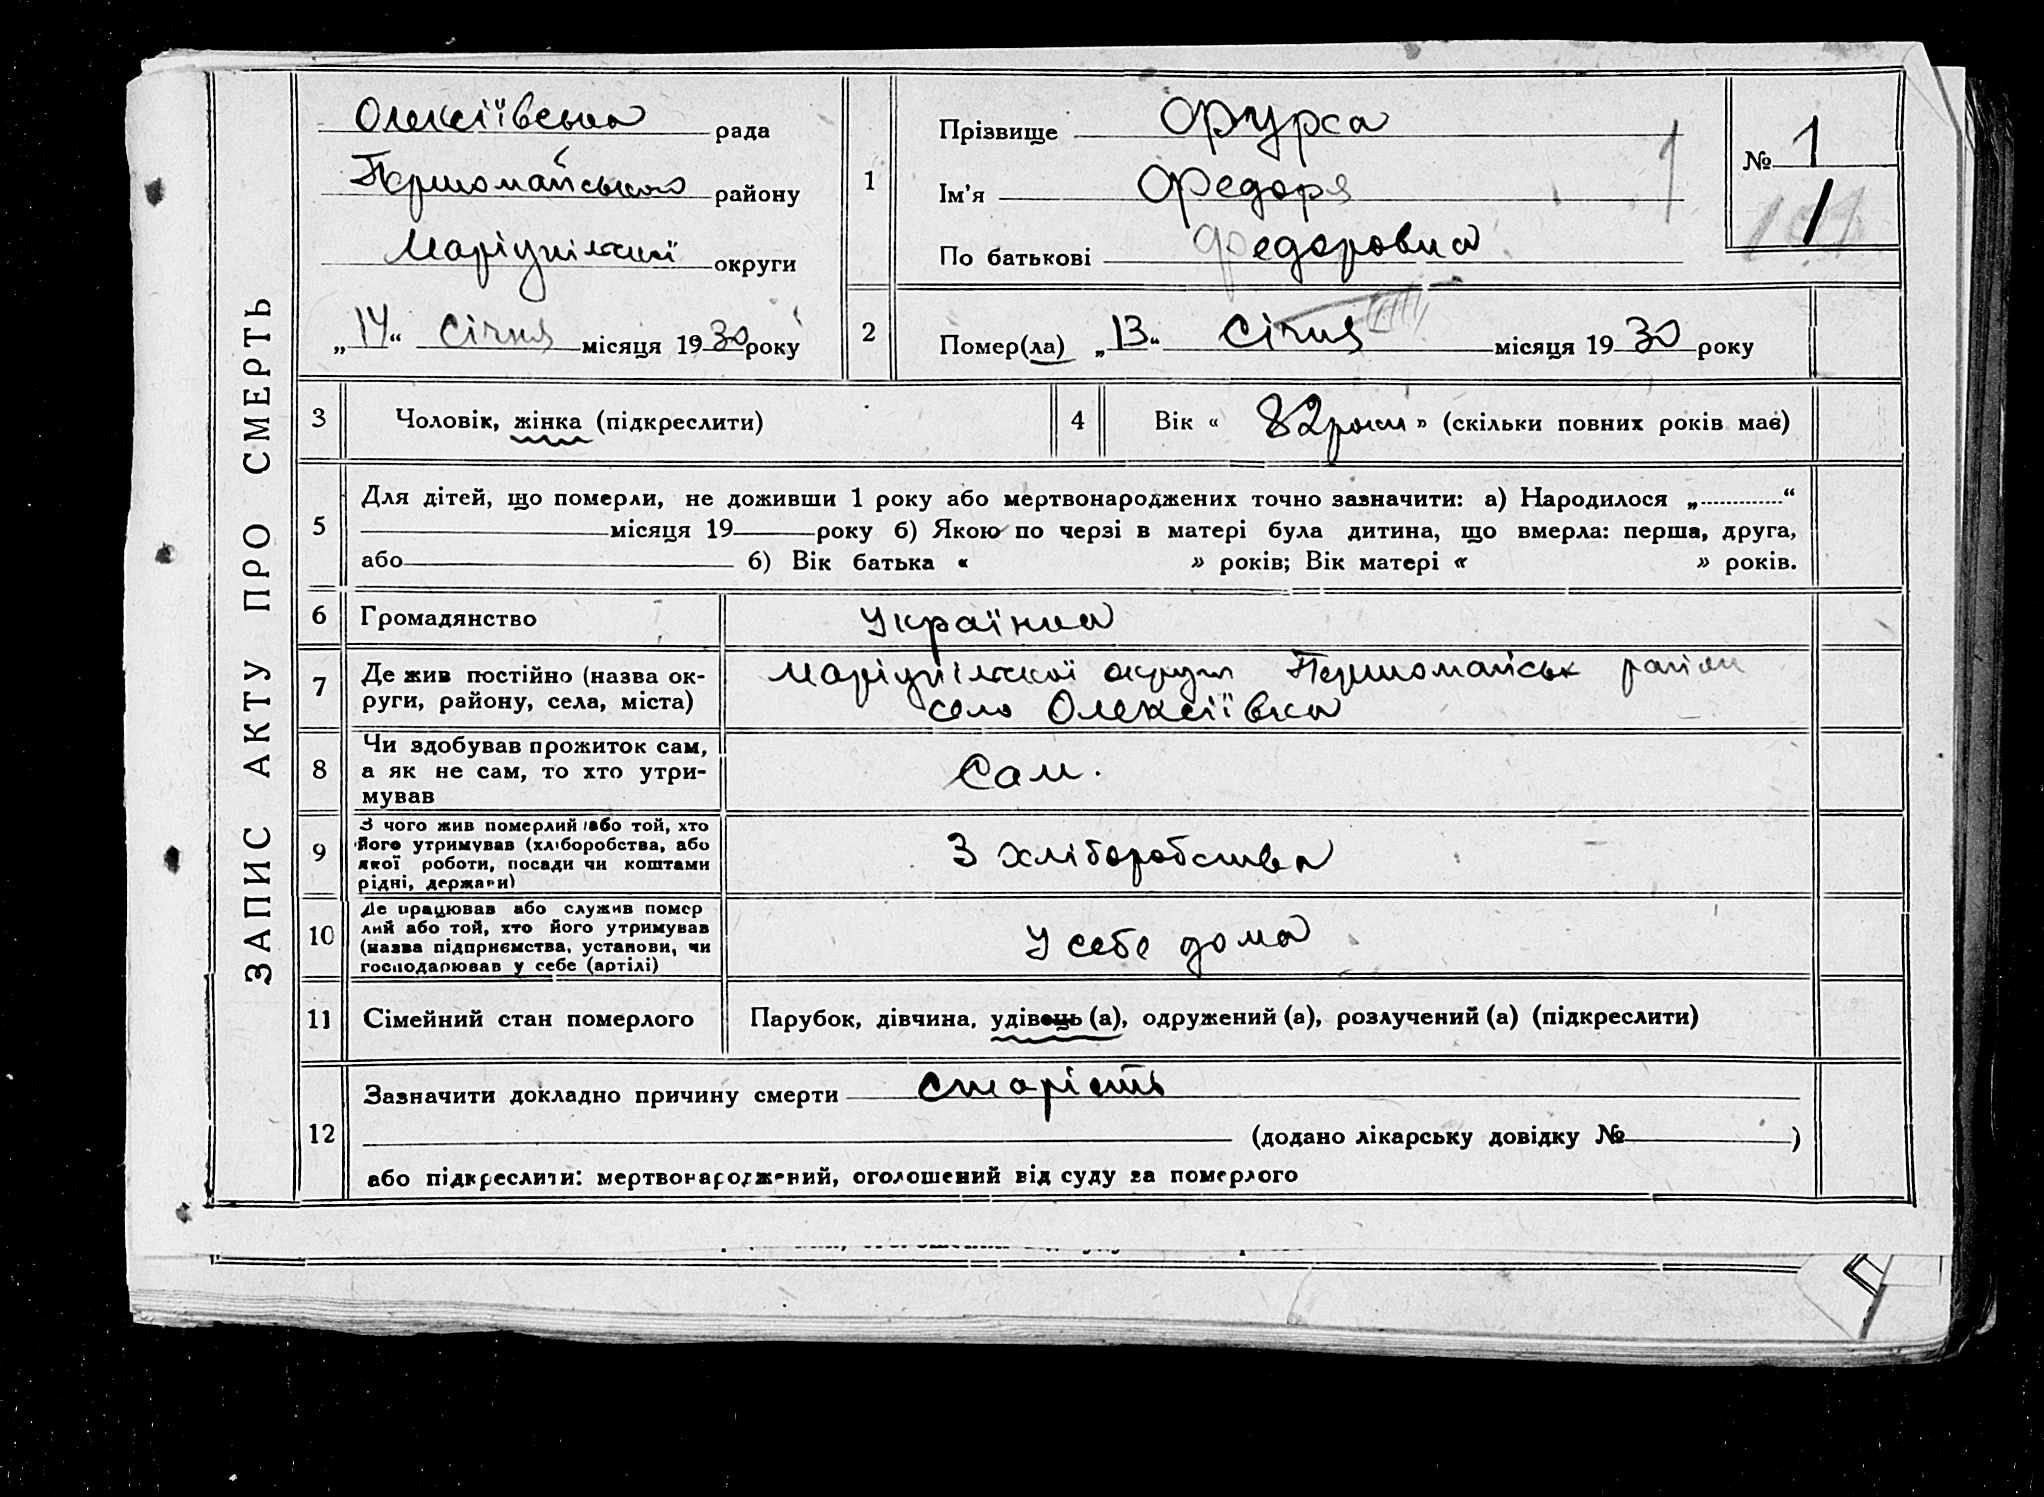 ЗАПИС АКТУ ПРО СМЕРТЬ
Олексіївська рада
Першомайського району
Маріупільської округи
„14“ Січня місяця 1930 року
1
Прізвище Фурса
Ім'я Федоря
По батькові Федоровна
№ 1
1
2
Помер(ла) „13“ Січня місяця 1930 року
3
Чоловік, жінка (підкреслити)
4
Вік « 82 роки » (скільки повних років має)
5
Для дітей, що померли, не доживши 1 року або мертвонароджених точно зазначити: а) Народилося „ “
місяця 19 року б) Якою по черзі в матері була дитина, що вмерла: перша, друга,
або б) Вік батька « » років; Вік матері « » років.
6
Громадянство
Українка
7
Де жив постійно (назва ок-
руги, району, села, міста)
Маріупільської округи Першомайськ район
село Олексіївка
8
Чи здобував прожиток сам,
а як не сам, то хто утри-
мував
Сам.
9
З чого жив померлий або той, хто
його утримував (хліборобства, або
якої роботи, посади чи коштами
рідні, держави)
З хліборобства
10
Де працював або служив помер
лий або той, хто його утримував
(назва підприємства, установи, чи
господарював у себе (артілі)
У себе дома
11
Сімейний стан померлого
Парубок, дівчина, удівець (а), одружений (а), розлучений (а) (підкреслити)
12
Зазначити докладно причину смерти старість
(додано лікарську довідку № )
або підкреслити: мертвонароджений, оголошений від суду за померлого